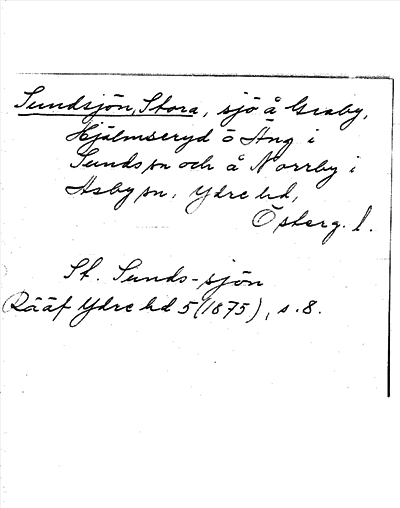 Sundsjön, Stora, sjö å Graby,
Hjälmseryd o Äng i
Sunds sn och å Norrby i
Asby sn, Ydre hd,
Österg. l.
St. Sunds-sjön
Rääf Ydre hd 5 (1875), s. 8.